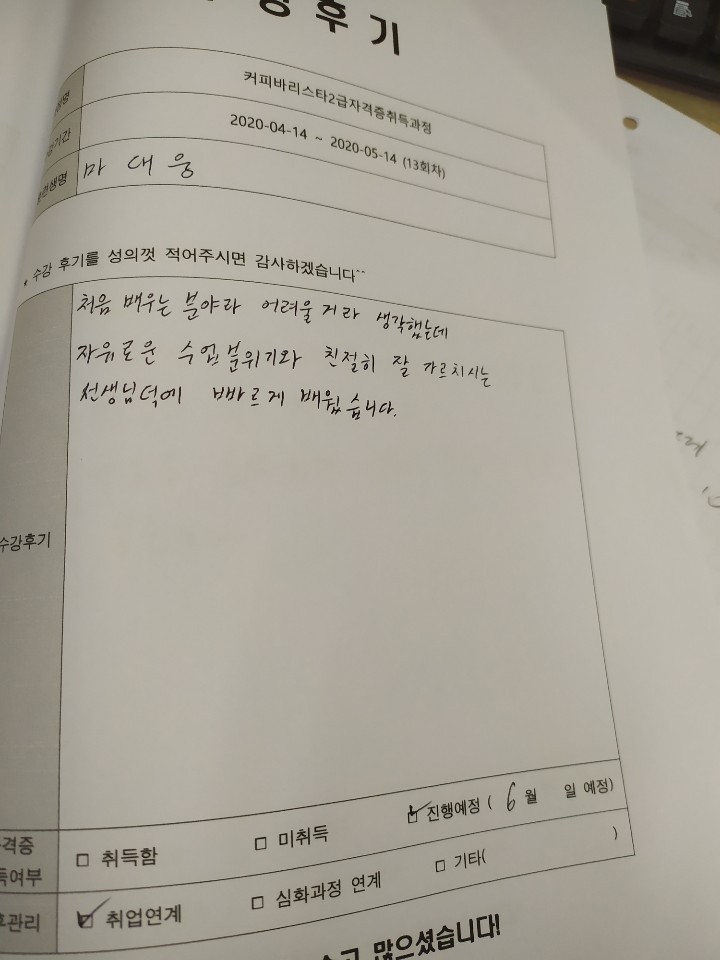 강후기
커피바리스타2급자격증취득과정
기간 2020-04-14 ~ 2020-05-14 (13회차)
생명 마대웅
* 수강 후기를 성의껏 적어주시면 감사하겠습니다^^
처음 배우는 분야라 어려울거라 생각했는데
자유로운 수업분위기와 친절히 잘 가르치시는
선생님덕에 빠르게 배웠습니다.
수강후기
격증
득여부
□ 취득함 □ 미취득 ☑ 진행예정 ( 6월 일 예정)
후관리 ☑ 취업연계 □ 심화과정 연계 □ 기타( )
수고 많으셨습니다!